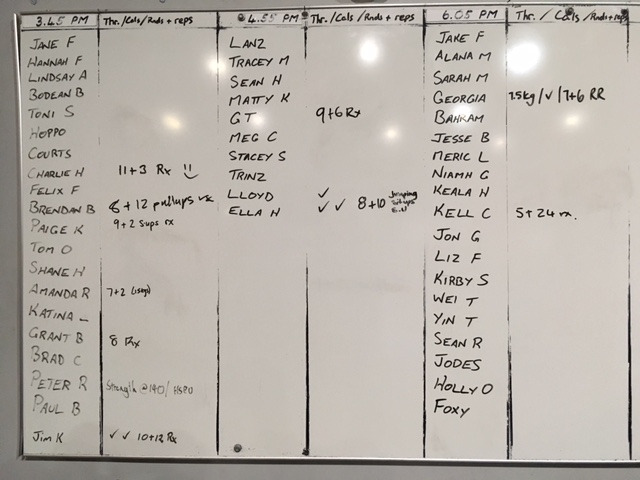 3.45 PM Thr./Cals/Rnds + reps
JANE F
HANNAH F
LINDSAY A
BODEAN B
TONI S
HOPPO
COURTS
CHARLIE H 11+3 Rx !!
FELIX F
BRENDAN B 8+12 pullups
PAIGE K 9+2 sups rx
TOM O
SHANE H
AMANDA R 7+2 (15kg)
KATINA _
GRANT B 8 Rx
BRAD C
PETER R Strength @140/HSPU
PAUL B
Jim K ✓ ✓ 10+12 Rx
4.55 PM Thr./Cals/Rnds + reps
LANZ
TRACEY M
SEAN H
MATTY K
GT 9+6 Rx
MEG C
STACEY S
TRINZ
LLOYD ✓
ELLA H ✓ ✓ 8+10 Jumping Situps
6.05 PM Thr./Cals/Rnds + reps
JAKE F
ALANA M
SARAH M
GEORGIA 7.5kg/✓/7+6 RR
BAHRAM
JESSE B
MERIC L
NIAMH G
KEALA H
KELL C 5+24 rx.
JON G
LIZ F
KIRBY S
WEI T
YIN T
SEAN R
JODES
HOLLY O
FOXY